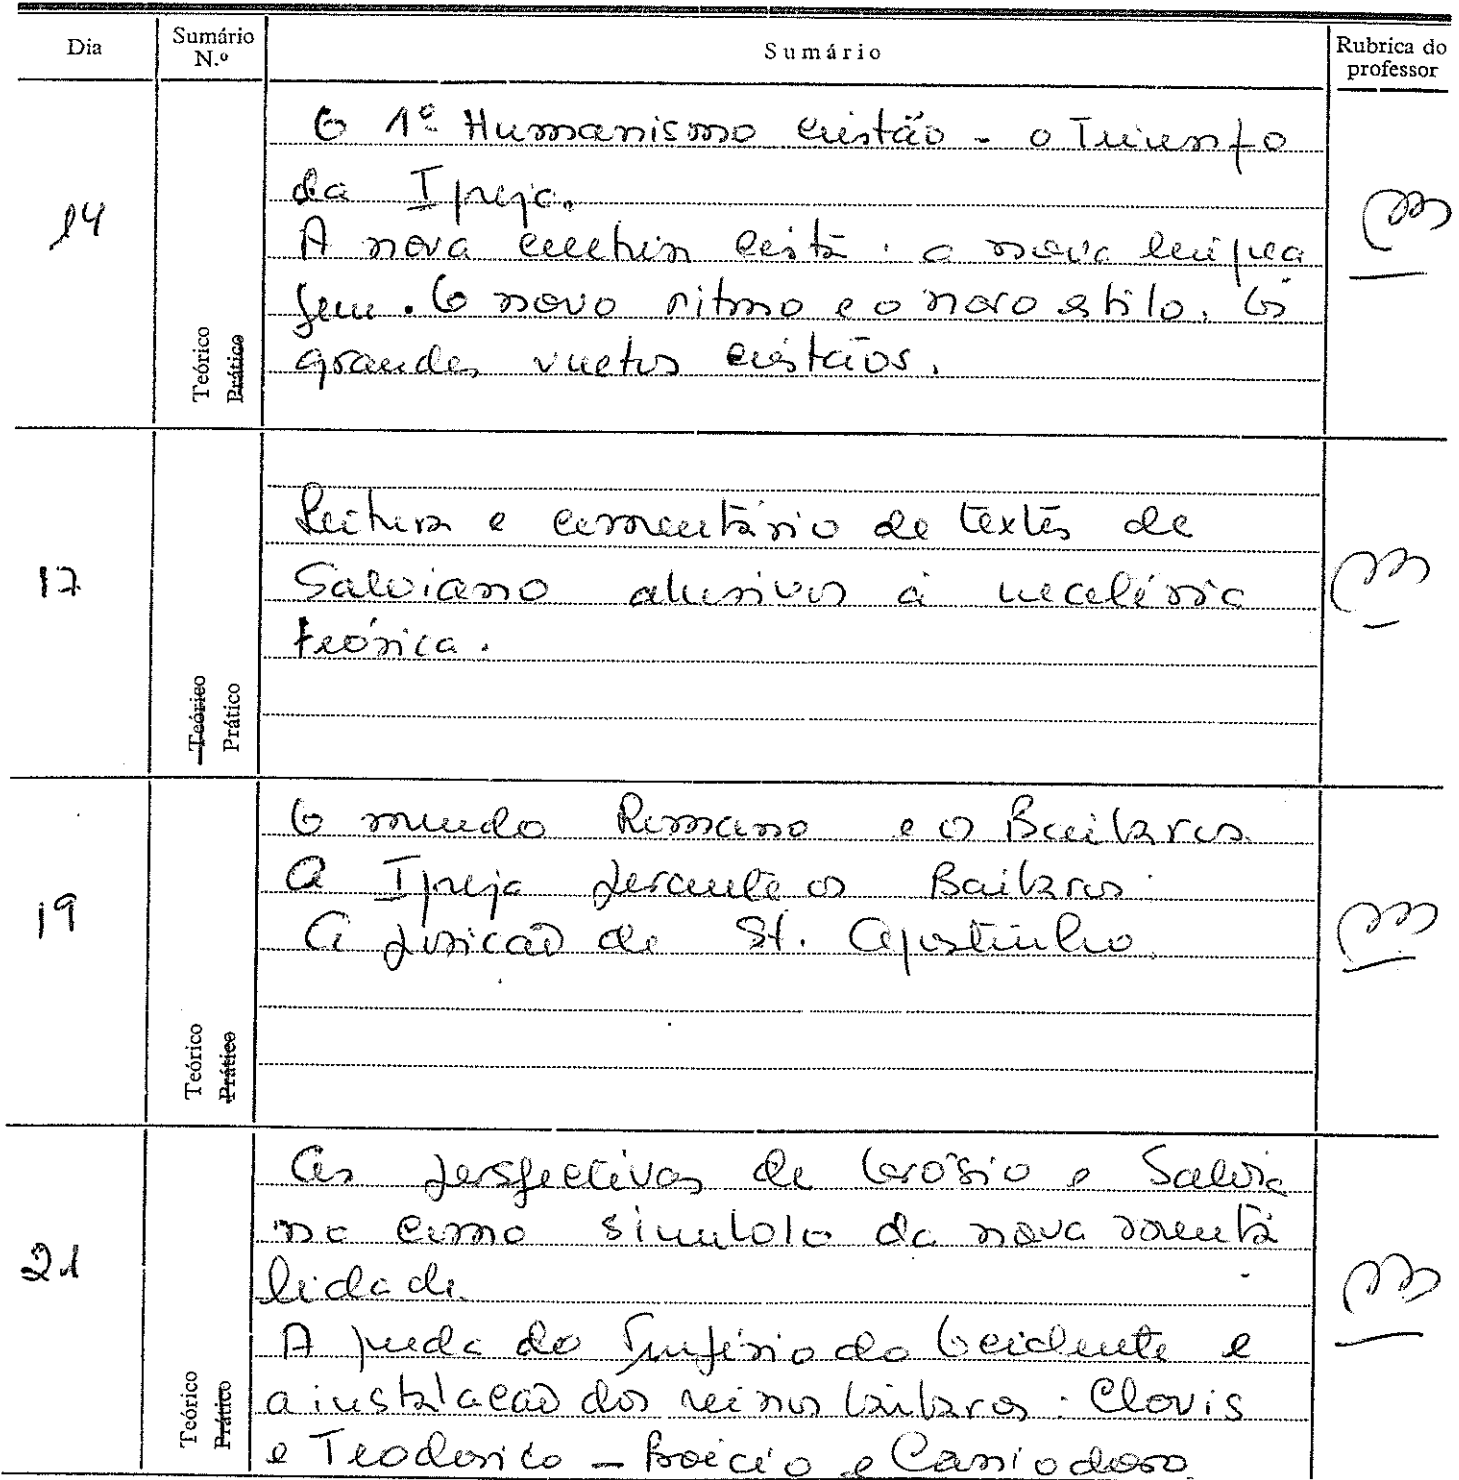 Dia
Sumário N.º
Sumário
Rubrica do professor
14
Teórico
Prático
O 1º Humanismo cristão - o Triunfo
da Igreja.
A nova cultura cristã : a nova lingua
gem. O novo ritmo e o novo estilo. Os
grandes vultos cristãos.
17
Teórico
Prático
Leitura e comentário de textos de
Salviano alusivos à
teórica.
19
Teórico
Prático
O mundo Romano e os Bárbaros
A Igreja perante os Bárbaros.
A posição de St. Agostinho.
21
Teórico
Prático
As perspectivas de Orósio e Salvia
no como símbolo da nova menta
lidade.
A queda do Império do Ocidente e
a instalação dos reinos bárbaros : Clovis
e Teodorico - Boécio e Cassiodoro